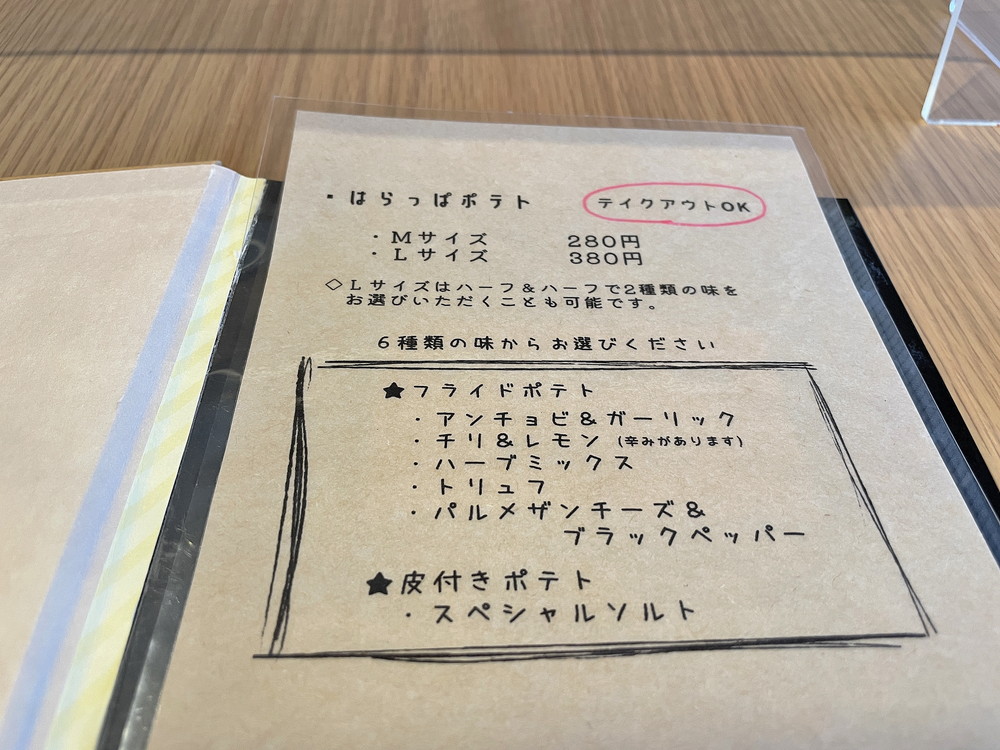 ・はらっぱポテト　テイクアウトOK
・Mサイズ　280円
・Lサイズ　380円
◇Lサイズはハーフ&ハーフで2種類の味を
お選びいただくことも可能です。
6種類の味からお選びください
★フライドポテト
・アンチョビ&ガーリック
・チリ&レモン (辛みがあります)
・ハーブミックス
・トリュフ
・パルメザンチーズ&
ブラックペッパー
★皮付きポテト
・スペシャルソルト